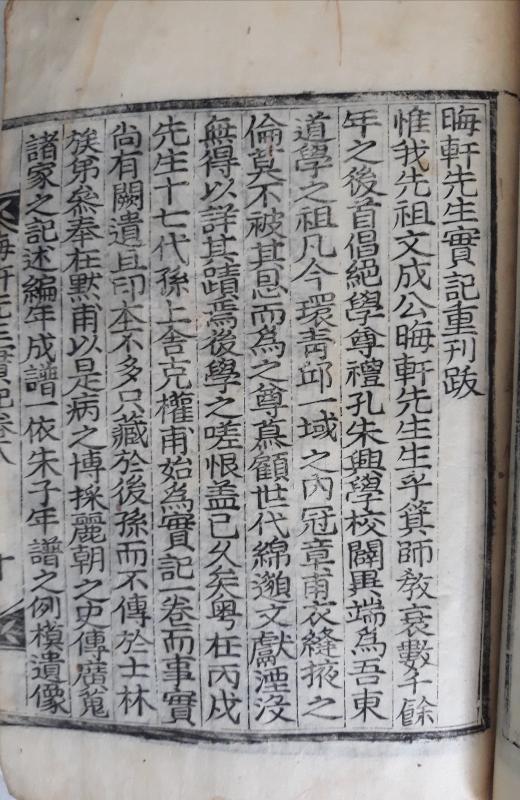 晦軒先生實記重刊跋
惟我先祖文成公晦軒先生生乎箕師敎衰數千餘
年之後首倡絕學尊禮孔朱興學校闢異端爲吾東
道學之祖凡今環靑邱一域之內冠章甫衣縫掖之
倫莫不被其恩而爲之尊慕顧世代綿邈文獻湮沒
無得以詳其蹟焉後學之嗟恨盖已久矣粤在丙戌
先生十七代孫上舍克權甫始爲實記一卷而事實
尙有闕遺且印本不多只藏於後孫而不傳於士林
族弟叅奉在默甫以是病之博採麗朝之史傳廣蒐
諸家之記述編年成譜一依朱子年譜之例模遺像
晦軒先生實記卷